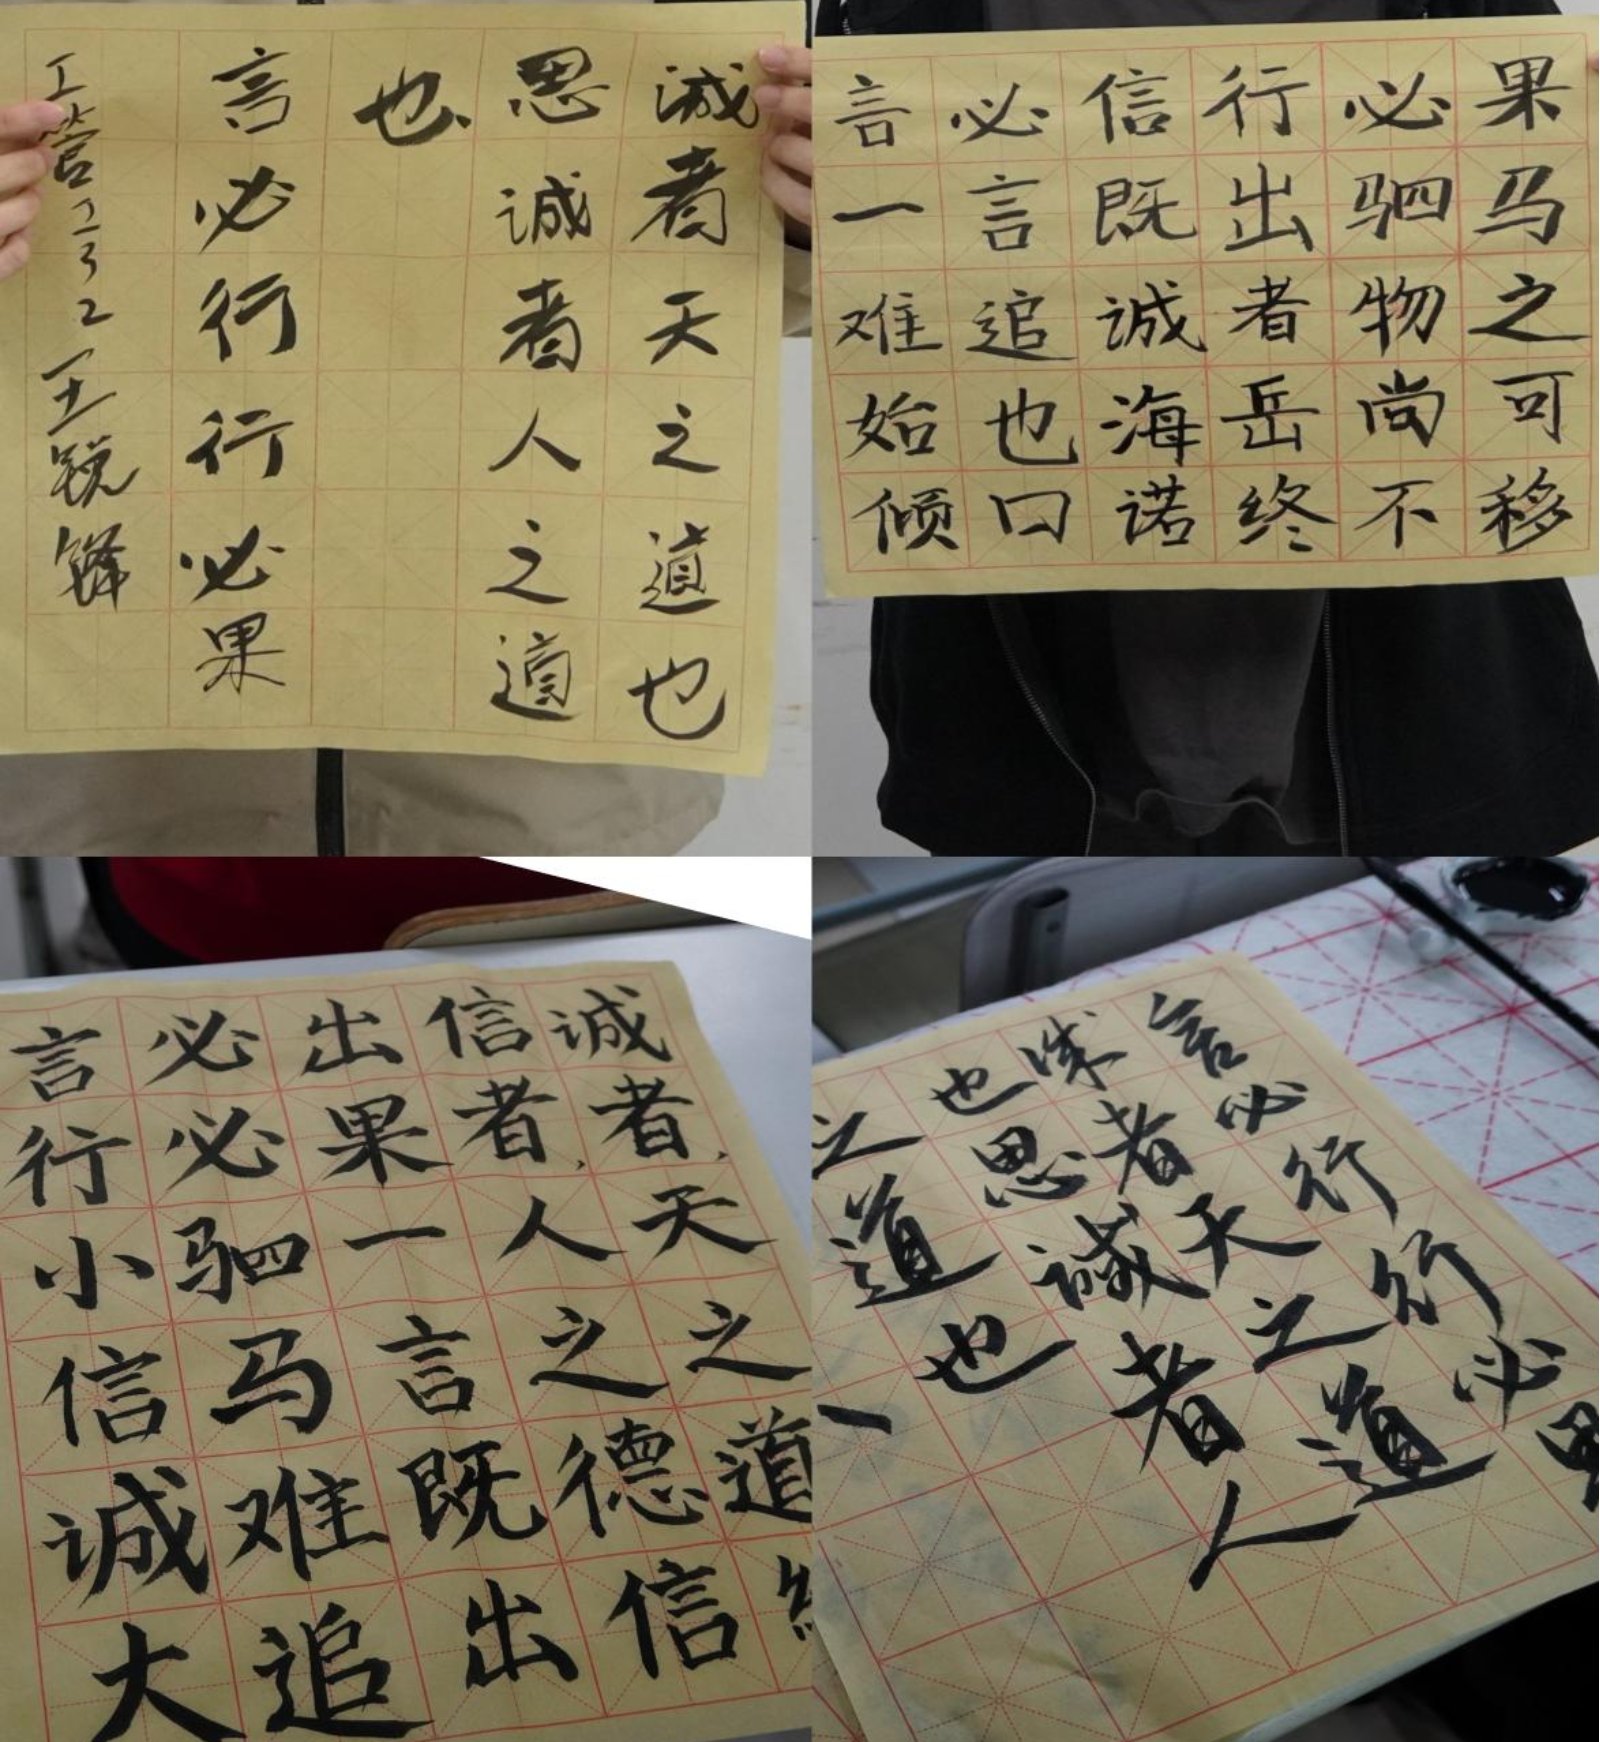 诚者天之道也
思诚者人之道
也
言必行行必果
王锐锋
言必信行必果
一言既出驷马
难追诚者物之
始也海岳尚可
倾口诺终不移
诚者,天之道
信者,人之德信
出果一言既出
必必驷马难追
言行小信诚大
言必行行必果
诚者天之道
也思诚者人
之道也
一